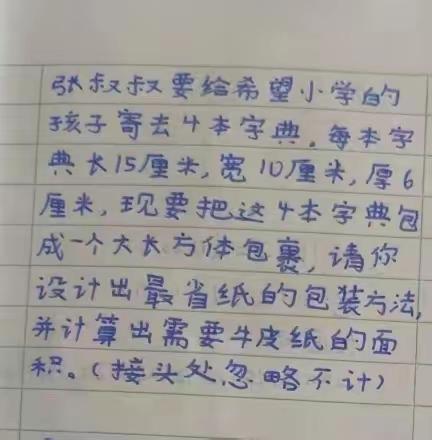 张叔叔要给希望小学的
孩子寄去4本字典，每本字
典长15厘米，宽10厘米，厚6
厘米，现要把这4本字典包
成一个大长方体包裹，请你
设计出最省纸的包装方法，
并计算出需要牛皮纸的面
积。（接头处忽略不计）